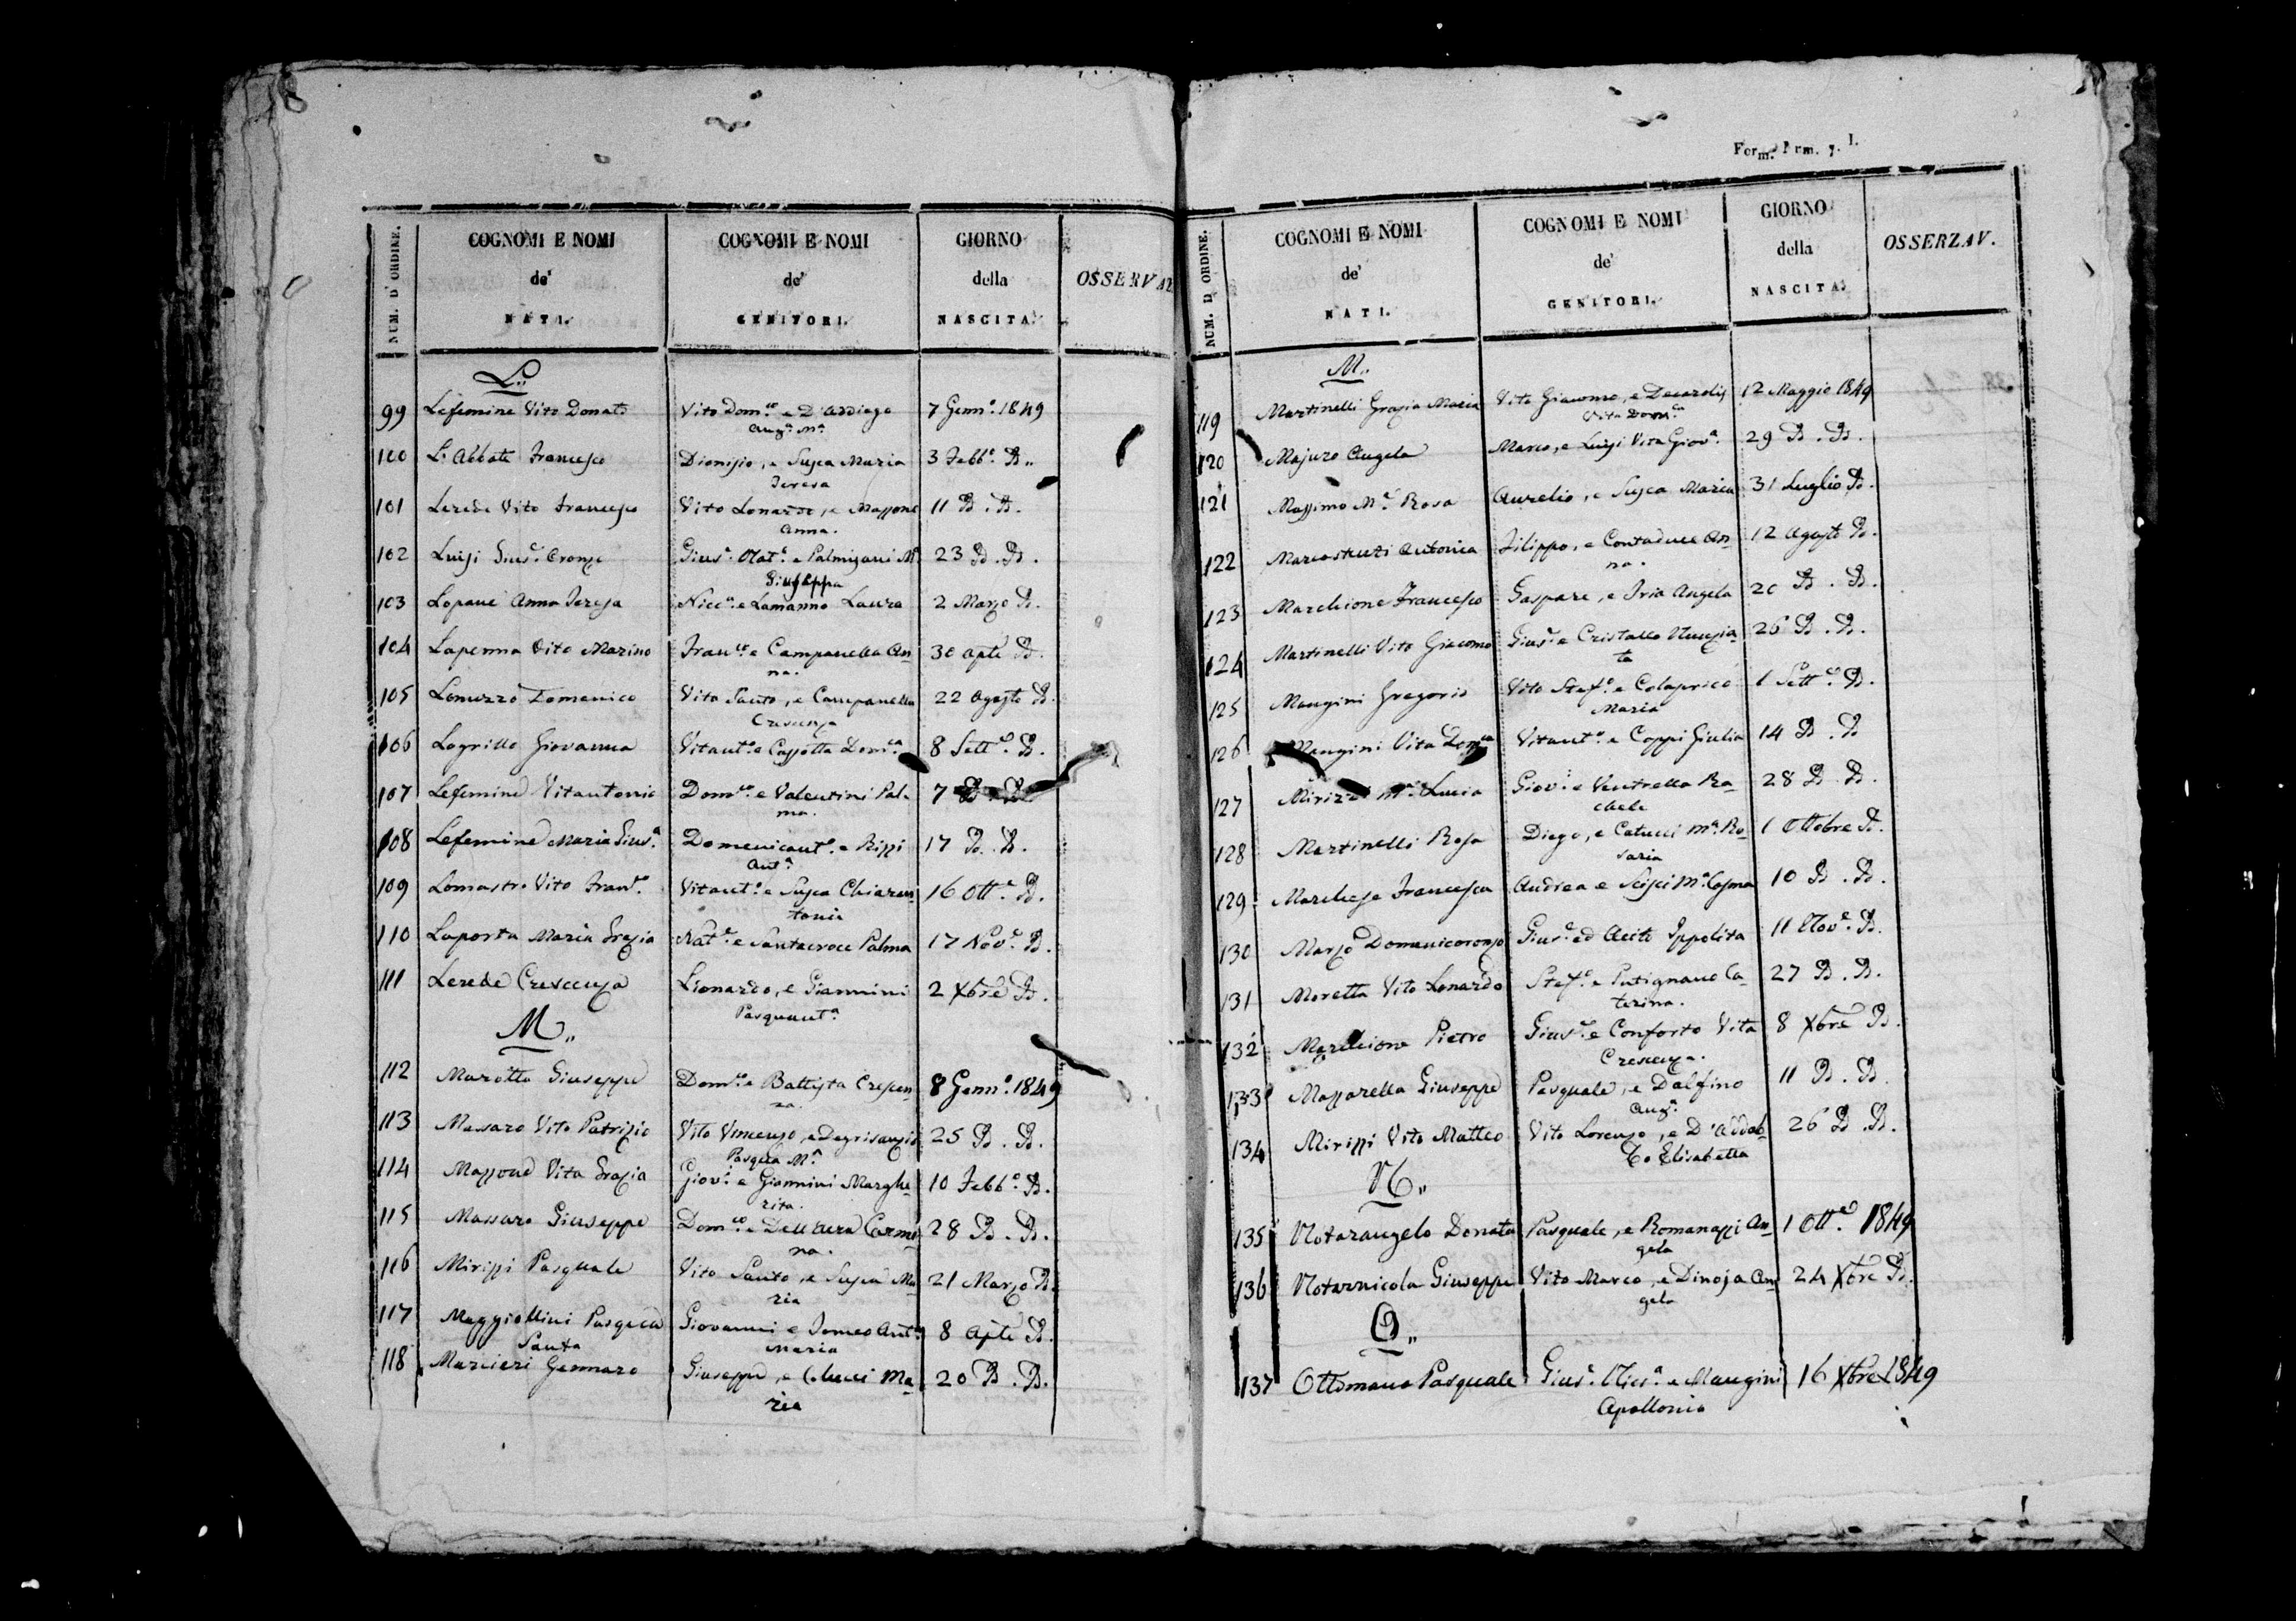 NUM. D' ORDINE.
COGNOMI E NOMI
de'
NATI.
COGNOMI E NOMI
de'
GENITORI.
GIORNO
della
NASCITA.
OSSERVAZ
L..
99 Lefemine Vito Donato Vito Dom.co e D'Addiego 7 Genn.o 1849
Ang.a M.a
100 L'Abbate Francesco Dionisio, e Susca Maria 3 Febb.o D..
Teresa
101 Lerede Vito Francesco Vito Lonardo, e Mazzone 11 D. D.
Anna.
102 Luisi Gius.e Oronzo Gius.e Nat.e e Palmisani M.a 23 D. D.
Giuseppa
103 Lopane Anna Teresa Nicc.a e Lamanna Laura 2 Marzo D.
104 Lapenna Vito Marino Fran.co e Campanella An- 30 Aple D.
na.
105 Lomuzzo Domenico Vito Santo, e Campanella 22 Agosto D.
Crescenza
106 Logrillo Giovanna Vitant.o e Cassotta Dom.ca 8 Sett.e D.
107 Lefemine Vitantonio Dom.co e Valentini Pal- 7 D. D.
ma.
108 Lefemine Maria Gius.a Domenicant.o e Rizzi 17 D. D.
Ant.a
109 Lomastro Vito Fran.co Vitant.o e Susca Chiaran- 16 Ott.e D.
tonia
110 Laporta Maria Grazia Nat.e e Santacroce Palma 17 Nov.e D.
111 Lerede Crescenza Lionardo, e Giannini 2 Xbre D.
Pasquant.a
M..
112 Marotta Giuseppe Dom.co e Battista Crescen- 8 Genn.o 1849
za.
113 Massaro Vito Patrizio Vito Vincenzo, e Degrisantis 25 D. D.
Pasqua M.a
114 Mazzone Vita Grazia Giov.i e Giannini Marghe- 10 Febb.o D.
rita.
115 Massaro Giuseppe Dom.co e Dell'Aera Carmi- 28 D. D.
na.
116 Mirizzi Pasquale Vito Santo, e Susca Ma- 21 Marzo D.
ria
117 Maggiollini Pasqua Giovanni e Ant.a 8 Aple D.
Santa Maria
118 Marcieri Gennaro Giuseppe, e Colucci Ma- 20 D. D.
ria
Form. Prm. 7. I.
NUM. D ORDINE.
COGNOMI E NOMI
de'
NATI.
COGNOMI E NOMI
de'
GENITORI.
GIORNO
della
NASCITA.
OSSERZAV.
M..
119 Martinelli Grazia Maria Vito Giacomo, e Decarolis 12 Maggio 1849
Vita Dom.ca
120 Majuro Angela Marco, e Luisi Vita Giov.a 29 D. D.
121 Massimo M.a Rosa Aurelio, e Susca Maria 31 Luglio D.
122 Marcostuzi Antonia Filippo, e Contaduca An- 12 Agosto D.
na.
123 Marchione Francesco Gaspare, e Iria Angela 20 D. D.
124 Martinelli Vito Giacomo Gius.e e Cristallo Nunzia- 26 D. D.
ta
125 Mangini Gregorio Vito Stef.o e Colaprico 1 Sett.e D.
Maria
126 Mangini Vita Dom.ca Vitant.o e Coppi Giulia 14 D. D
127 Mirizzi M.a Lucia Giov.i e Ventrella Ra- 28 D. D.
chele
128 Martinelli Rosa Diego, e Catucci M.a Ro- 1 Ottobre D.
saria
129 Marchese Francesca Andrea e Scisci M.a Cosma 10 D. D.
130 Marzo Domenicoronzo Gius.e ed Aciti Ippolita 11 Nov.e D.
131 Moretta Vito Lonardo Stef.o e Putignano Ca- 27 D. D.
terina.
132 Marchione Pietro Gius.e e Conforto Vita 8 Xbre D.
Crescenza.
133 Mazzarella Giuseppe Pasquale, e Dalfino 11 D. D.
Ang.a
134 Mirizzi Vito Matteo Vito Lorenzo, e D'Addab- 26 D. D.
bo Elisabetta
N..
135 Notarangelo Donata Pasquale, e Romanazzi An- 1 Ott.e 1849
gela
136 Notarnicola Giuseppe Vito Marco, e Dinoja An- 24 Xbre D.
gela
O..
137 Ottomano Pasquale Gius.e Nic.a e Mangini 16 Xbre 1849
Apollonia